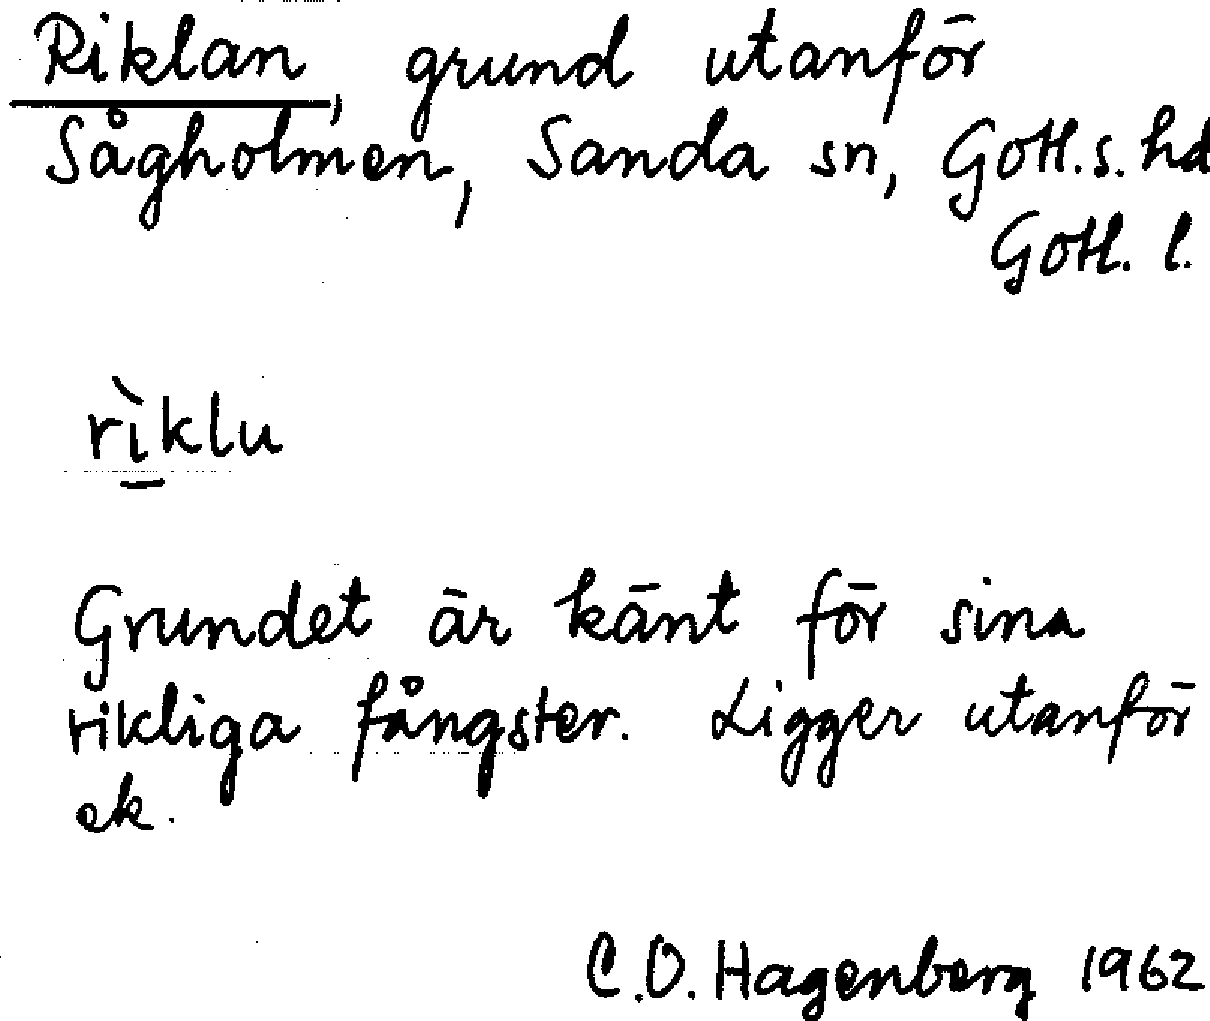 Riklan, grund utanför
Sågholmen, Sanda sn, Gotl. s. hd
Gotl. l.
rìklu
Grundet är känt för sina
rikliga fångster. Ligger utanför
ek.
C.O. Hagenberg 1962